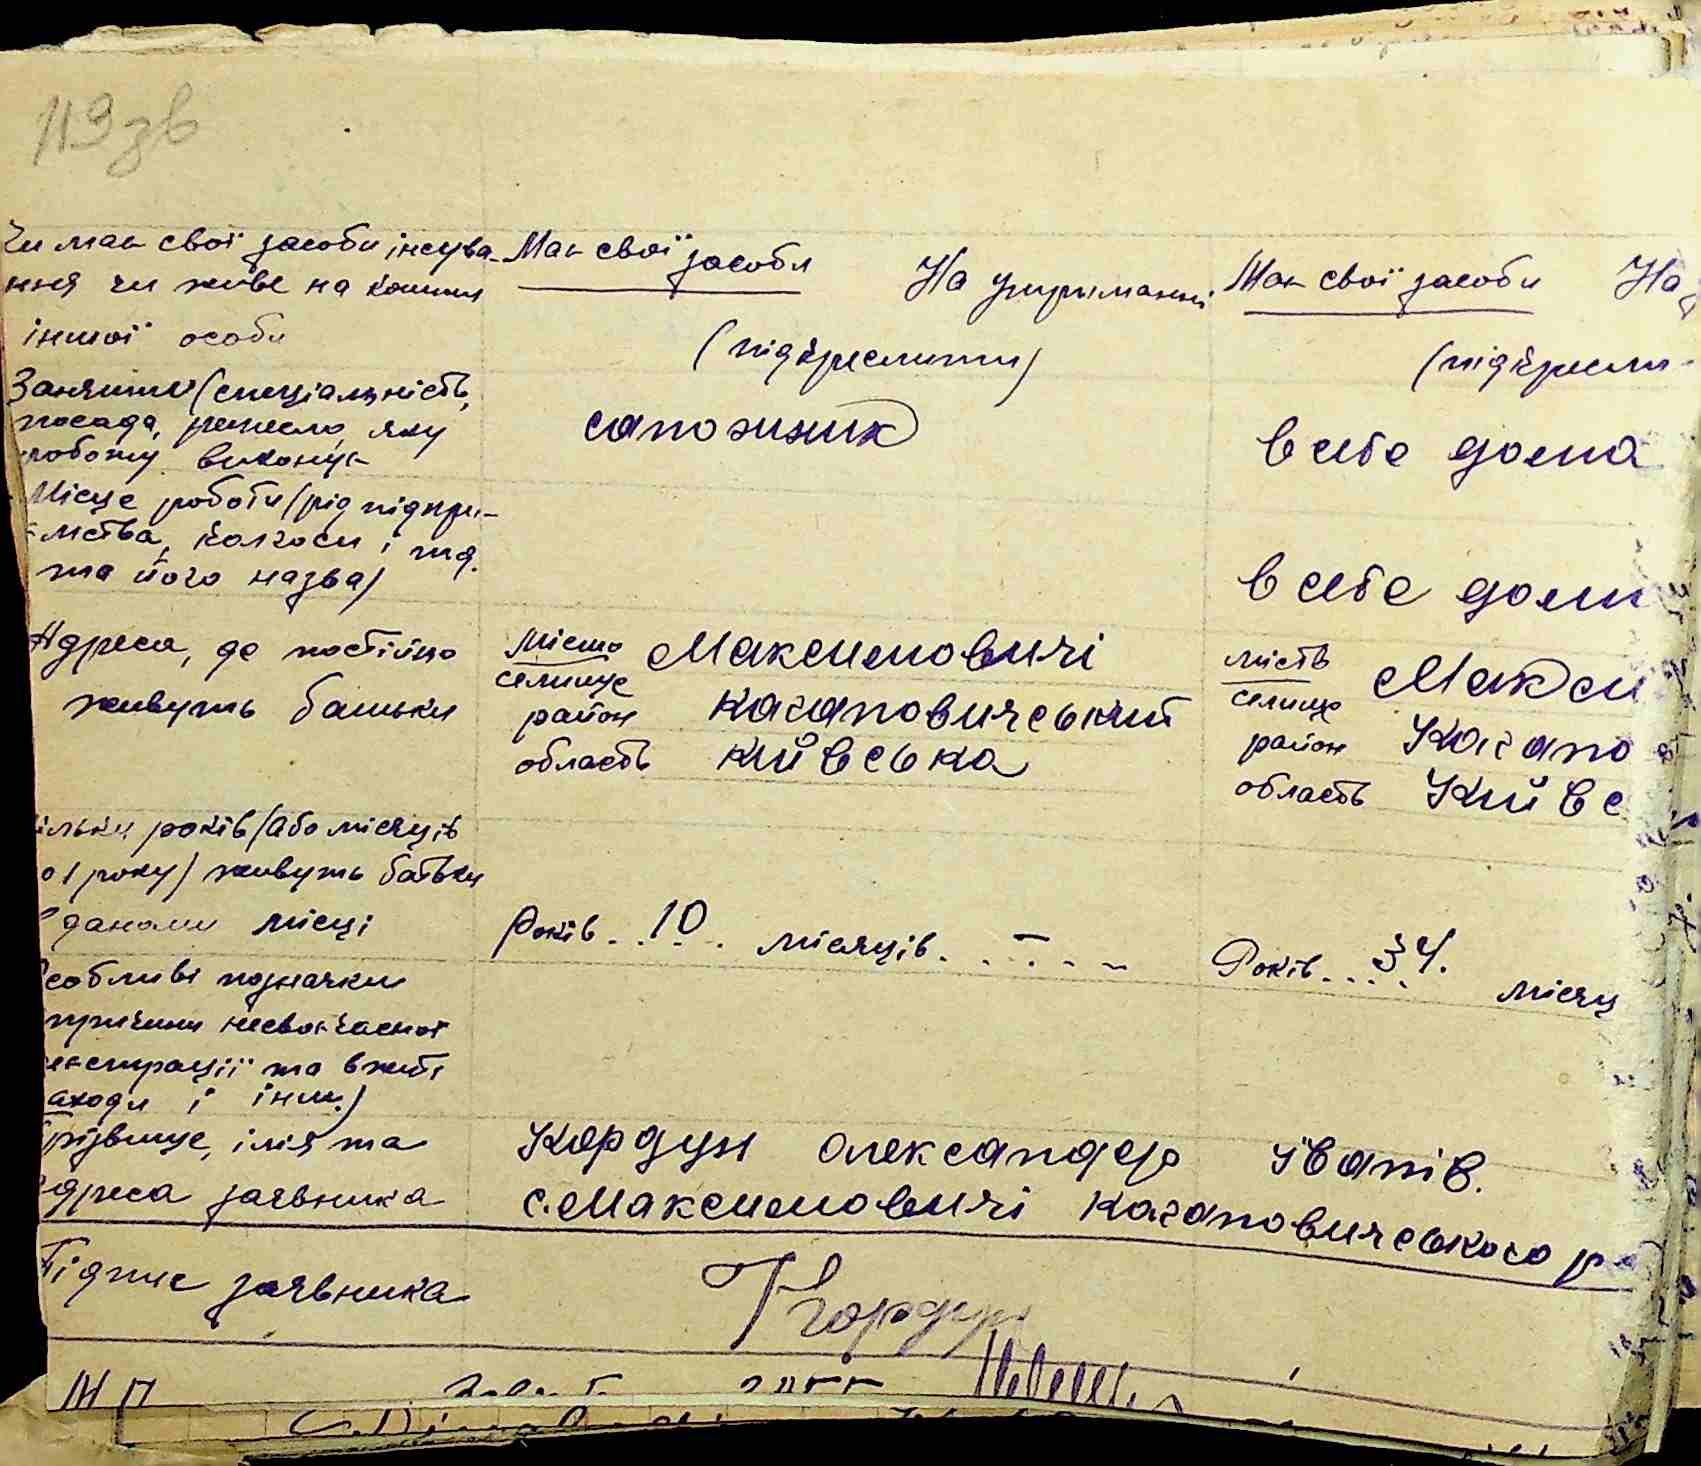 119 зв
Чи має свої засоби існува- Має свої засоби На утриманні Має свої засоби На
ння чи живе на кошти
іншої особи (підкреслити) (підкресли-
Заняття (спеціальність,
посада, ремесло, яку сапожник в себе дома
роботу виконує
Місце роботи (рід підпри-
ємства, колгосп і т.д. в себе доми
та його назва)
Адреса, де постійно місто Максимовичі місто Макси
живуть батьки селище селище
район Кагановичський район Кагано
область Київська область Київс
ільки років (або місяців
о 1 року) живуть батьки
даному місці Років 10 місяців - Років 34. місяц
собливі позначки
причини несвоєчасної
єстрації та вжиті
аходи і інш.)
різвище, ім'я та Кордун Олександр Іванів.
дреса заявника с. Максимовичі Кагановичського р
Підпис заявника Кордун
М П